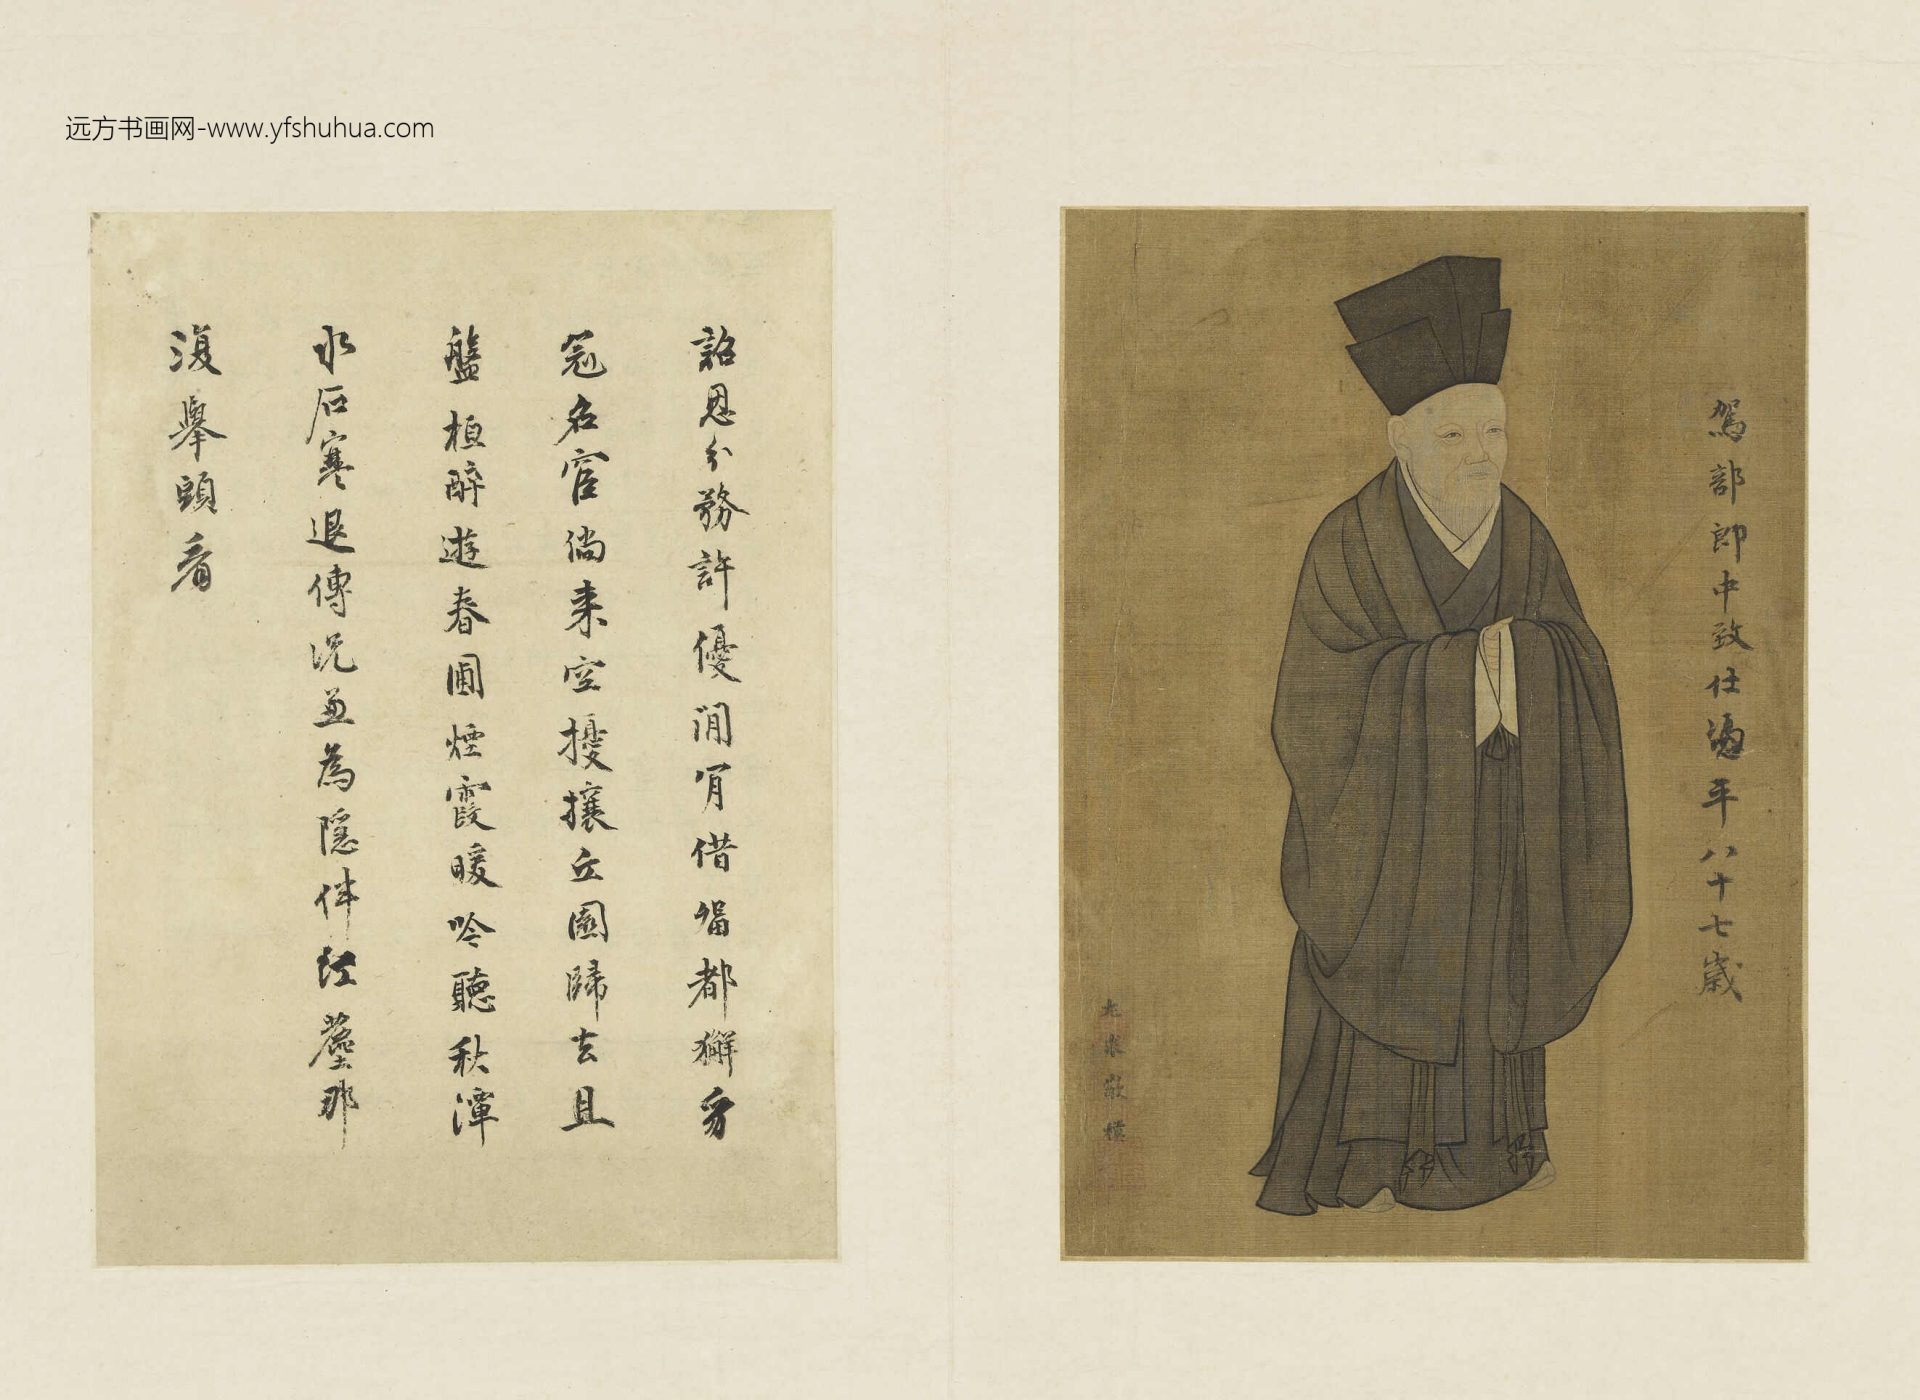 远方书画网-www.yfshuhua.com
駕部郎中致仕馮平八十七歲
尤求敬摸
詔恩分務許優閒肎借留都獬豸
冠名宦倘来空擾攘丘園歸去且
盤桓醉遊春圃煙霞暖吟聽秋潭
水石寒退傅況並為隱伴紅塵那
復舉頭看